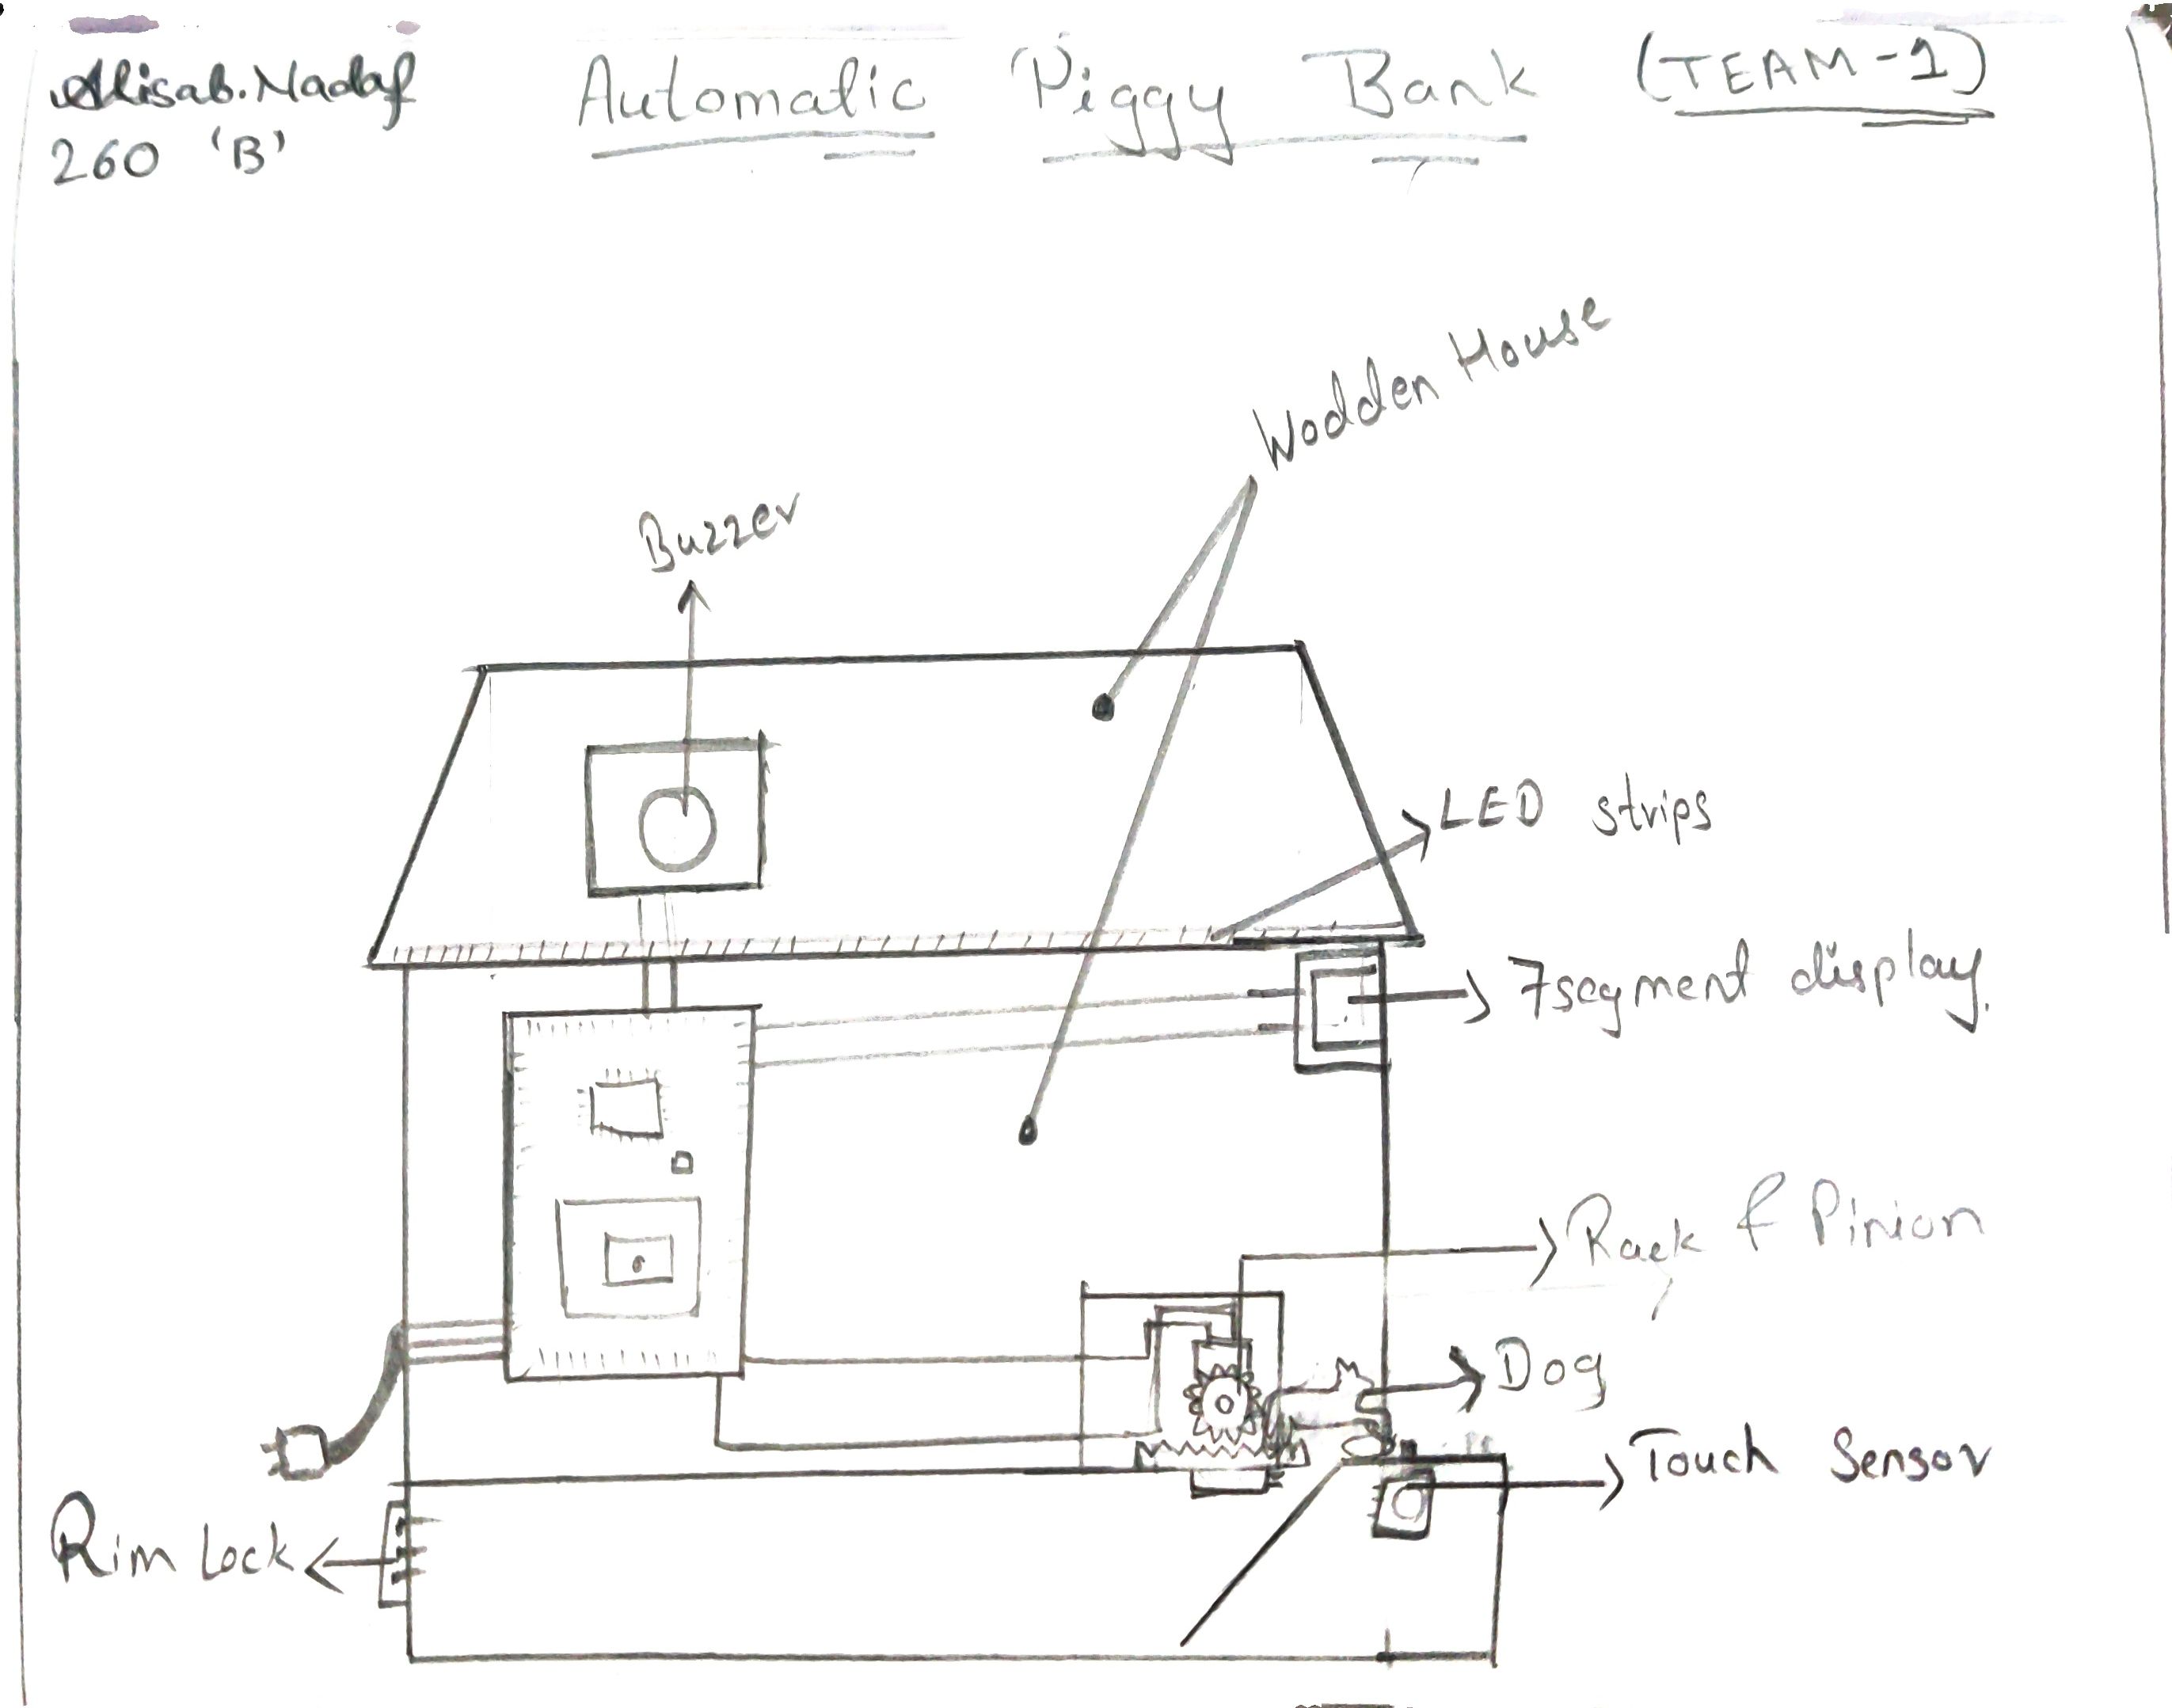 Alisab.Nadaf
260 'B'
Automatic Piggy Bank (TEAM-1)
Wodden House
Buzzer
LED strips
7segment display.
Rack & Pinion
Dog
Touch Sensor
Rim Lock